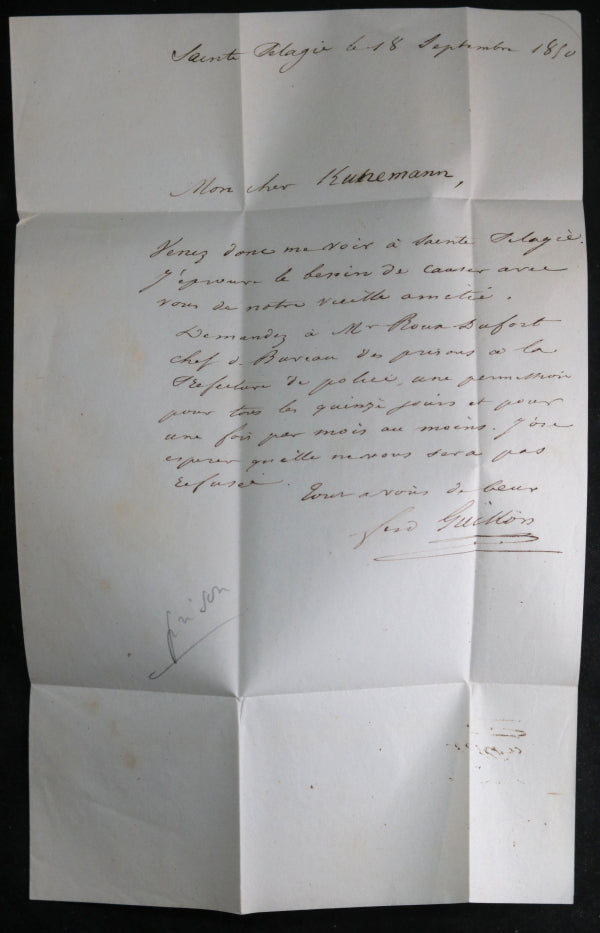 Sainte Pelagie le 18 Septembre 1850
Mon cher Kunemann,
Venez donc me voir à Sainte Pelagie.
J'éprouve le besoin de causer avec
vous de notre vieille amitié.
Demandez à Mr Roux Dufort
chef de Bureau des prisons à la
Prefecture de police, une permission
pour tous les quinze jours et pour
une fois par mois au moins. J'ose
esperer qu'elle ne vous sera pas
refusée. Tout a vous de cœur
Ferd Guillon
prison